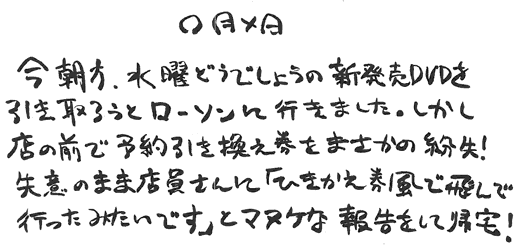 〇月×日
今朝方、水曜どうでしょうの新発売DVDを
引き取ろうとローソンに行きました。しかし
店の前で予約引き換え券をまさかの紛失!
失意のまま店員さんに「ひきかえ券風で飛んで
行ったみたいです」とマヌケな報告をして帰宅!